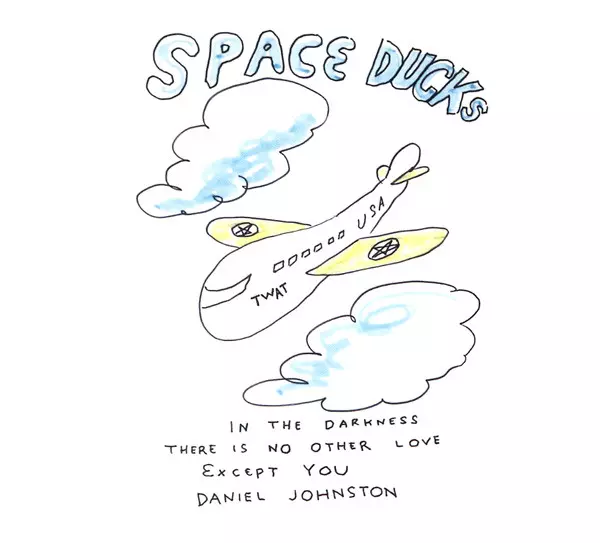 SPACE DUCKS
USA
TWAT
IN THE DARKNESS
THERE IS NO OTHER LOVE
EXCEPT YOU
DANIEL JOHNSTON